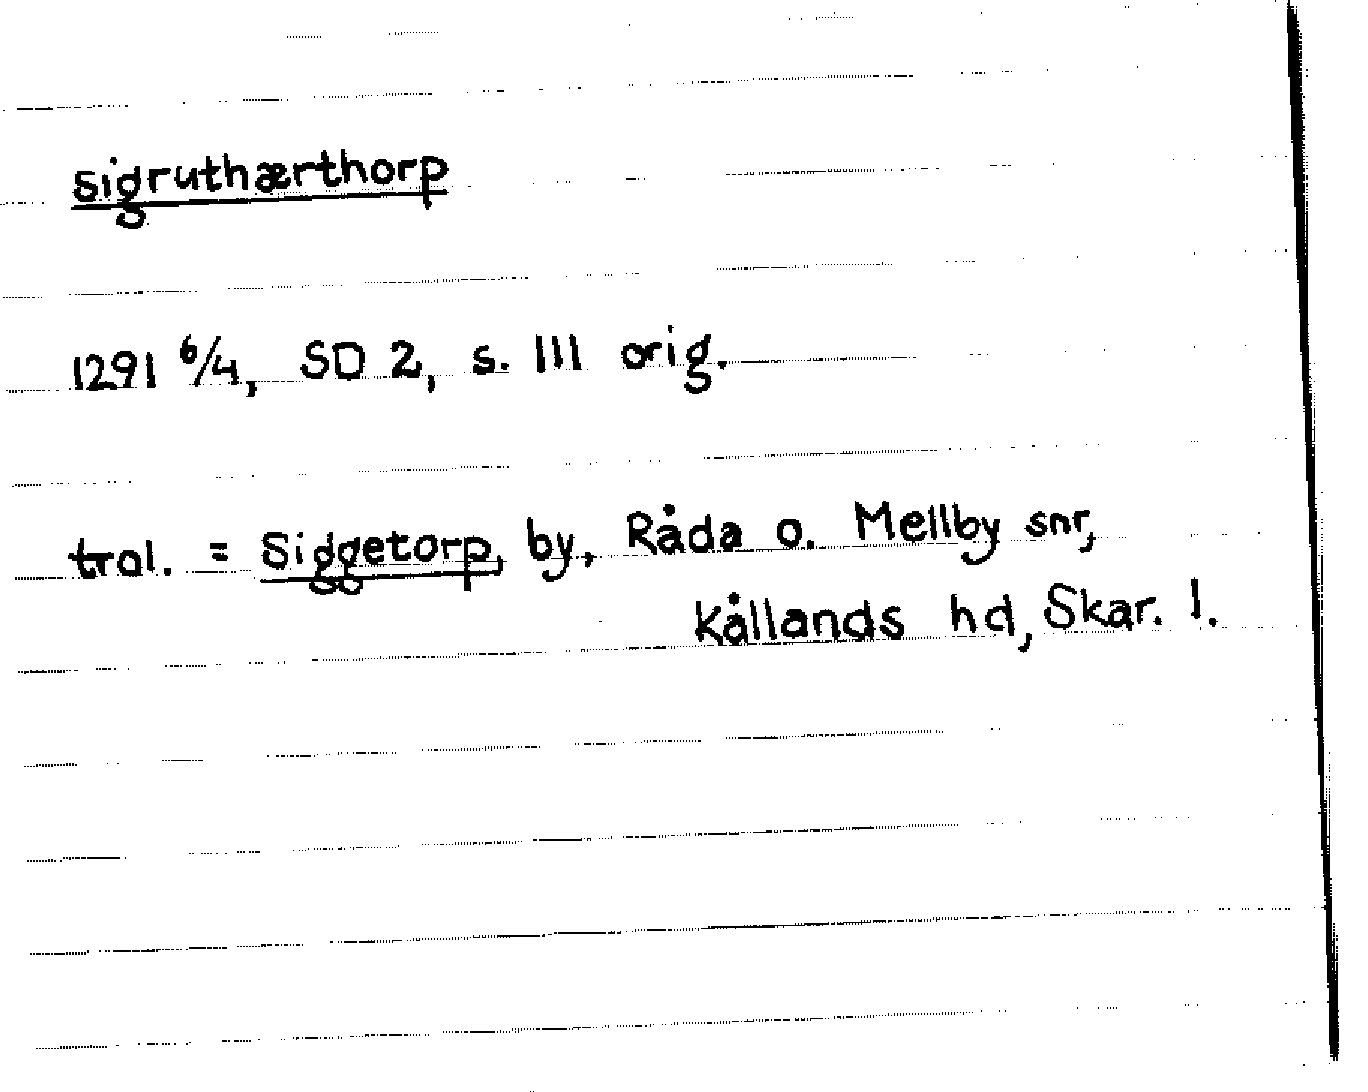 sigruthærthorp
1291 6/4, SD 2, s. 111 orig.
trol. = Siggetorp, by, Råda o. Mellby snr,
Kållands hd, Skar. l.